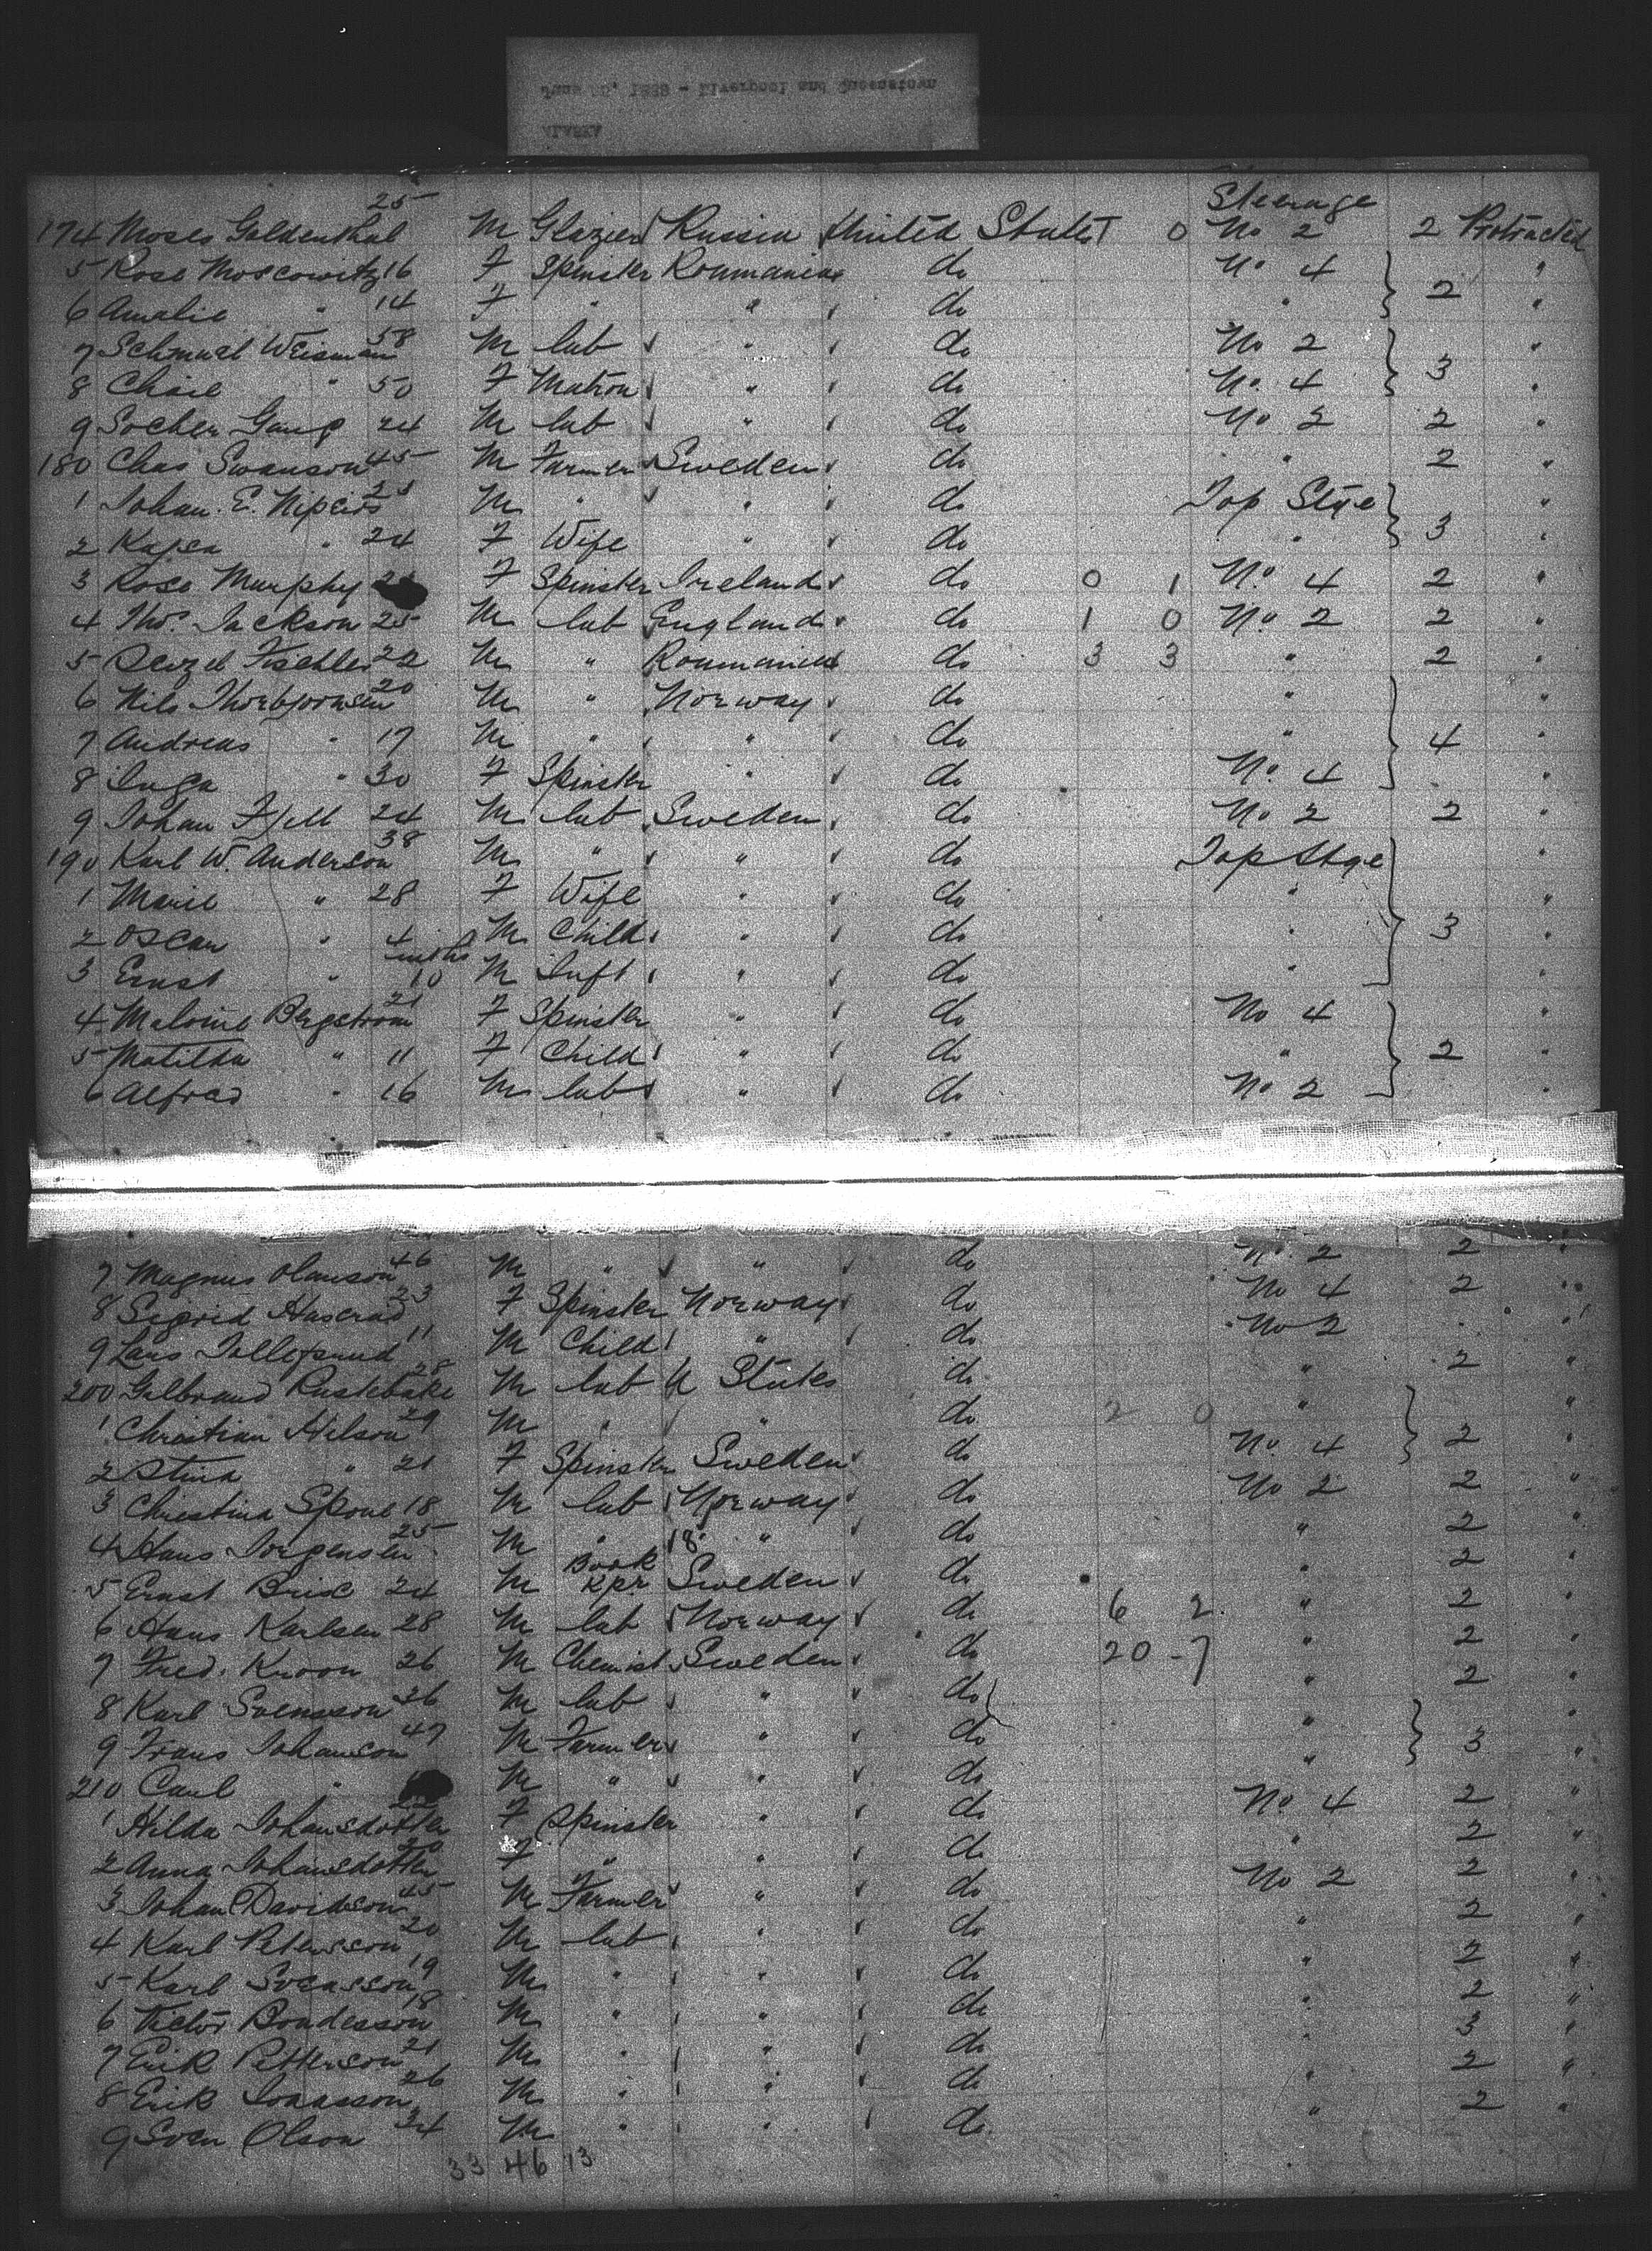 ALASKA
June 1889 - Liverpool and Queenstown
Steerage
174 Moses Goldenthal 25 M Glazier Russia United States 0 No 2 2 Protracted
5 Rose Moscowitz 16 F Spinster Roumania do No 4 "
6 Amalie " 14 F " " do " 2 "
7 Schmuel Weisman 58 M lab " do No 2 "
8 Chaie " 50 F Matron " do No. 4 3 "
9 Socher 24 M lab " do No 2 2 "
180 Chas Swanson 45 M Farmer Sweden do " 2 "
1 Johan. E. M " " do Top Stge "
2 Kajsa " 24 F Wife " do " 3 "
3 Rose Murphy F Spinster Ireland do 0 1 No. 4 2 "
4 Tho. Jackson 25 M lab England do 1 0 No. 2 2 "
5 Fischler 22 M " Roumania do 3 3 " 2 "
6 Nils Thorbjornsen 20 M " Norway do " "
7 Andreas " 17 M " " do " 4 "
8 Inga " 30 F Spinster " do No. 4 "
9 Johan Fjell 24 M lab Sweden do No 2 2 "
190 Karl W. Anderson 38 M " " do Top Stge "
1 Marie " 28 F Wife " do " "
2 Oscar " 4 M Child " do " 3 "
3 Ernst " mths 10 M Inft " do " "
4 Malvine Bergstrom 21 F Spinster " do No 4 "
5 Matilda " 11 F Child " do " 2 "
6 Alfred " 16 M lab " do No 2 "
7 Magnus Olauson 46 M " " do No. 2 2 "
8 Sigrid 23 F Spinster Norway do No 4 2 "
9 Lars 11 M Child " do No 2 "
200 Gulbrand 28 M lab U States do " 2 "
1 Christian Nilson 29 M " " do 2 0 " "
2 Stina " 21 F Spinster Sweden do No 4 2 "
3 Christina 18 M lab Norway do No 2 2 "
4 Hans Jorgensen 25 M " " do " 2 "
5 Ernst Brix 24 M Book Kpr Sweden do " 2 "
6 Hans Karlsen 28 M lab Norway do 6 2 " 2 "
7 Fred. 26 M Chemist Sweden do 20 - 7 " 2 "
8 Karl Svensson 26 M lab " do " 2 "
9 Frans Johanson 47 M Farmer " do " "
210 Carl " M " " do " 3 "
1 Hilda Johansdotter F Spinster " do No 4 2 "
2 Anna Johansdotter 20 F " " do " 2 "
3 Johan Davidson 45 M Farmer " do No 2 2 "
4 Karl Petersson 20 M lab " do " 2 "
5 Karl Svensson 19 M " " do " 2 "
6 Victor Bondesson 18 M " " do " 2 "
7 Erik Petterson 21 M " " do " 3 "
8 Erik Jonasson 26 M " " do " 2 "
9 Sven Olson 34 M " " do " 2 "
33 46 13